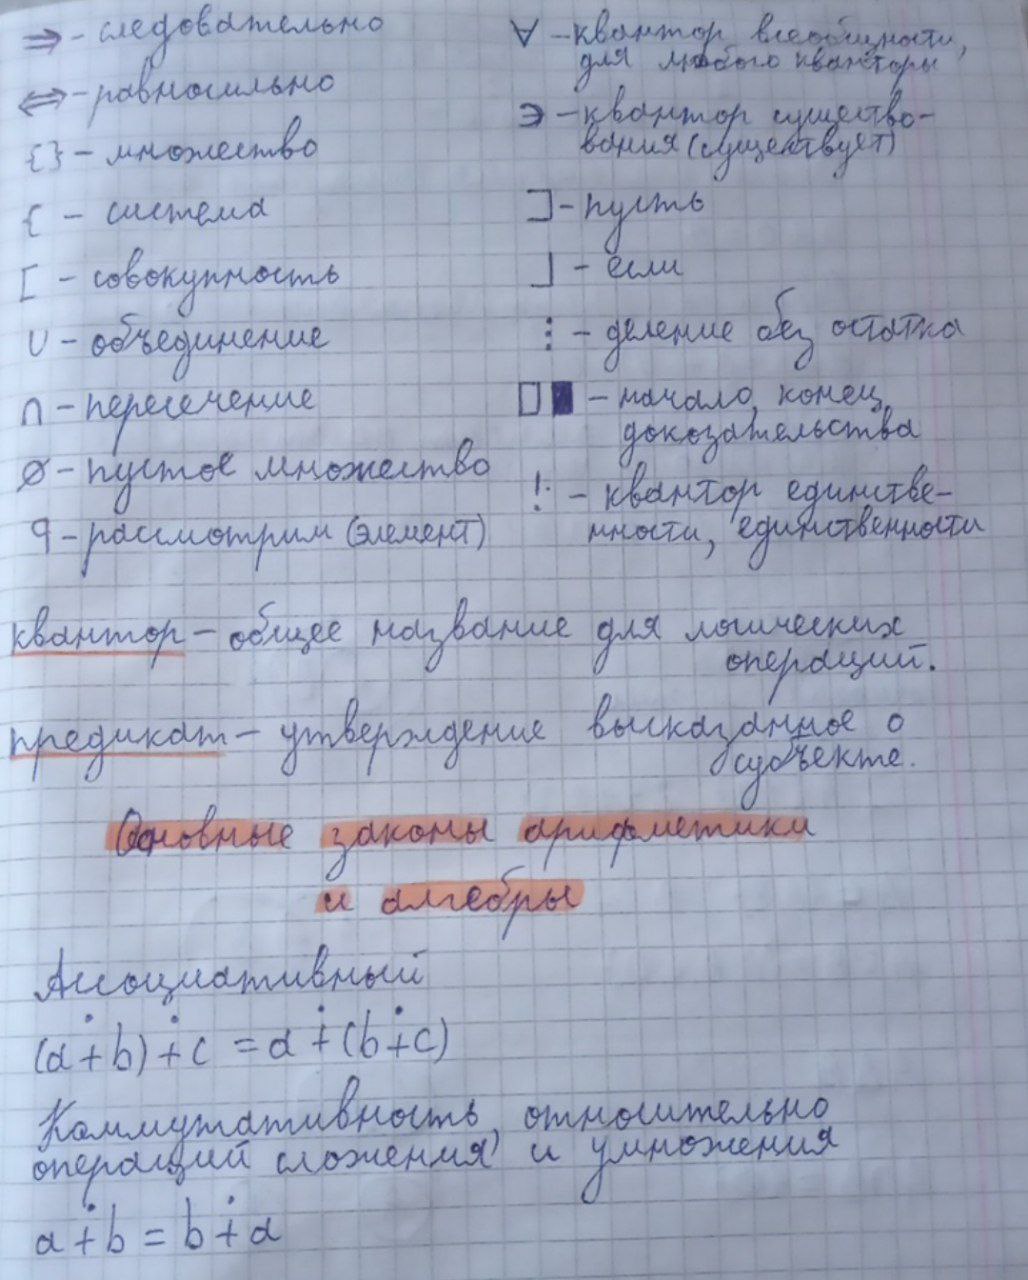 ⇒ - следовательно
⇔ - равносильно
{} - множество
{ - система
[ - совокупность
∪ - объединение
∩ - пересечение
∅ - пустое множество
୧ - рассмотрим (элемент)
∀ - квантор всеобщности,
для любого кванторы
∃ - квантор существо-
вания (существует)
⊐ - пусть
] - если
⋮ - деление без остатка
□■ - начало, конец
докозательства
! - квантор единстве-
нности, единственности
квантор - общее название для логических
операций.
предикат - утверждение высказанное о
субъекте.
Основные законы арифметики
и алгебры
Ассоциативный
(a ∔ b) ∔ c = a ∔ (b ∔ c)
Коммутативность, относительно
операций сложения и умножения
a ∔ b = b ∔ a